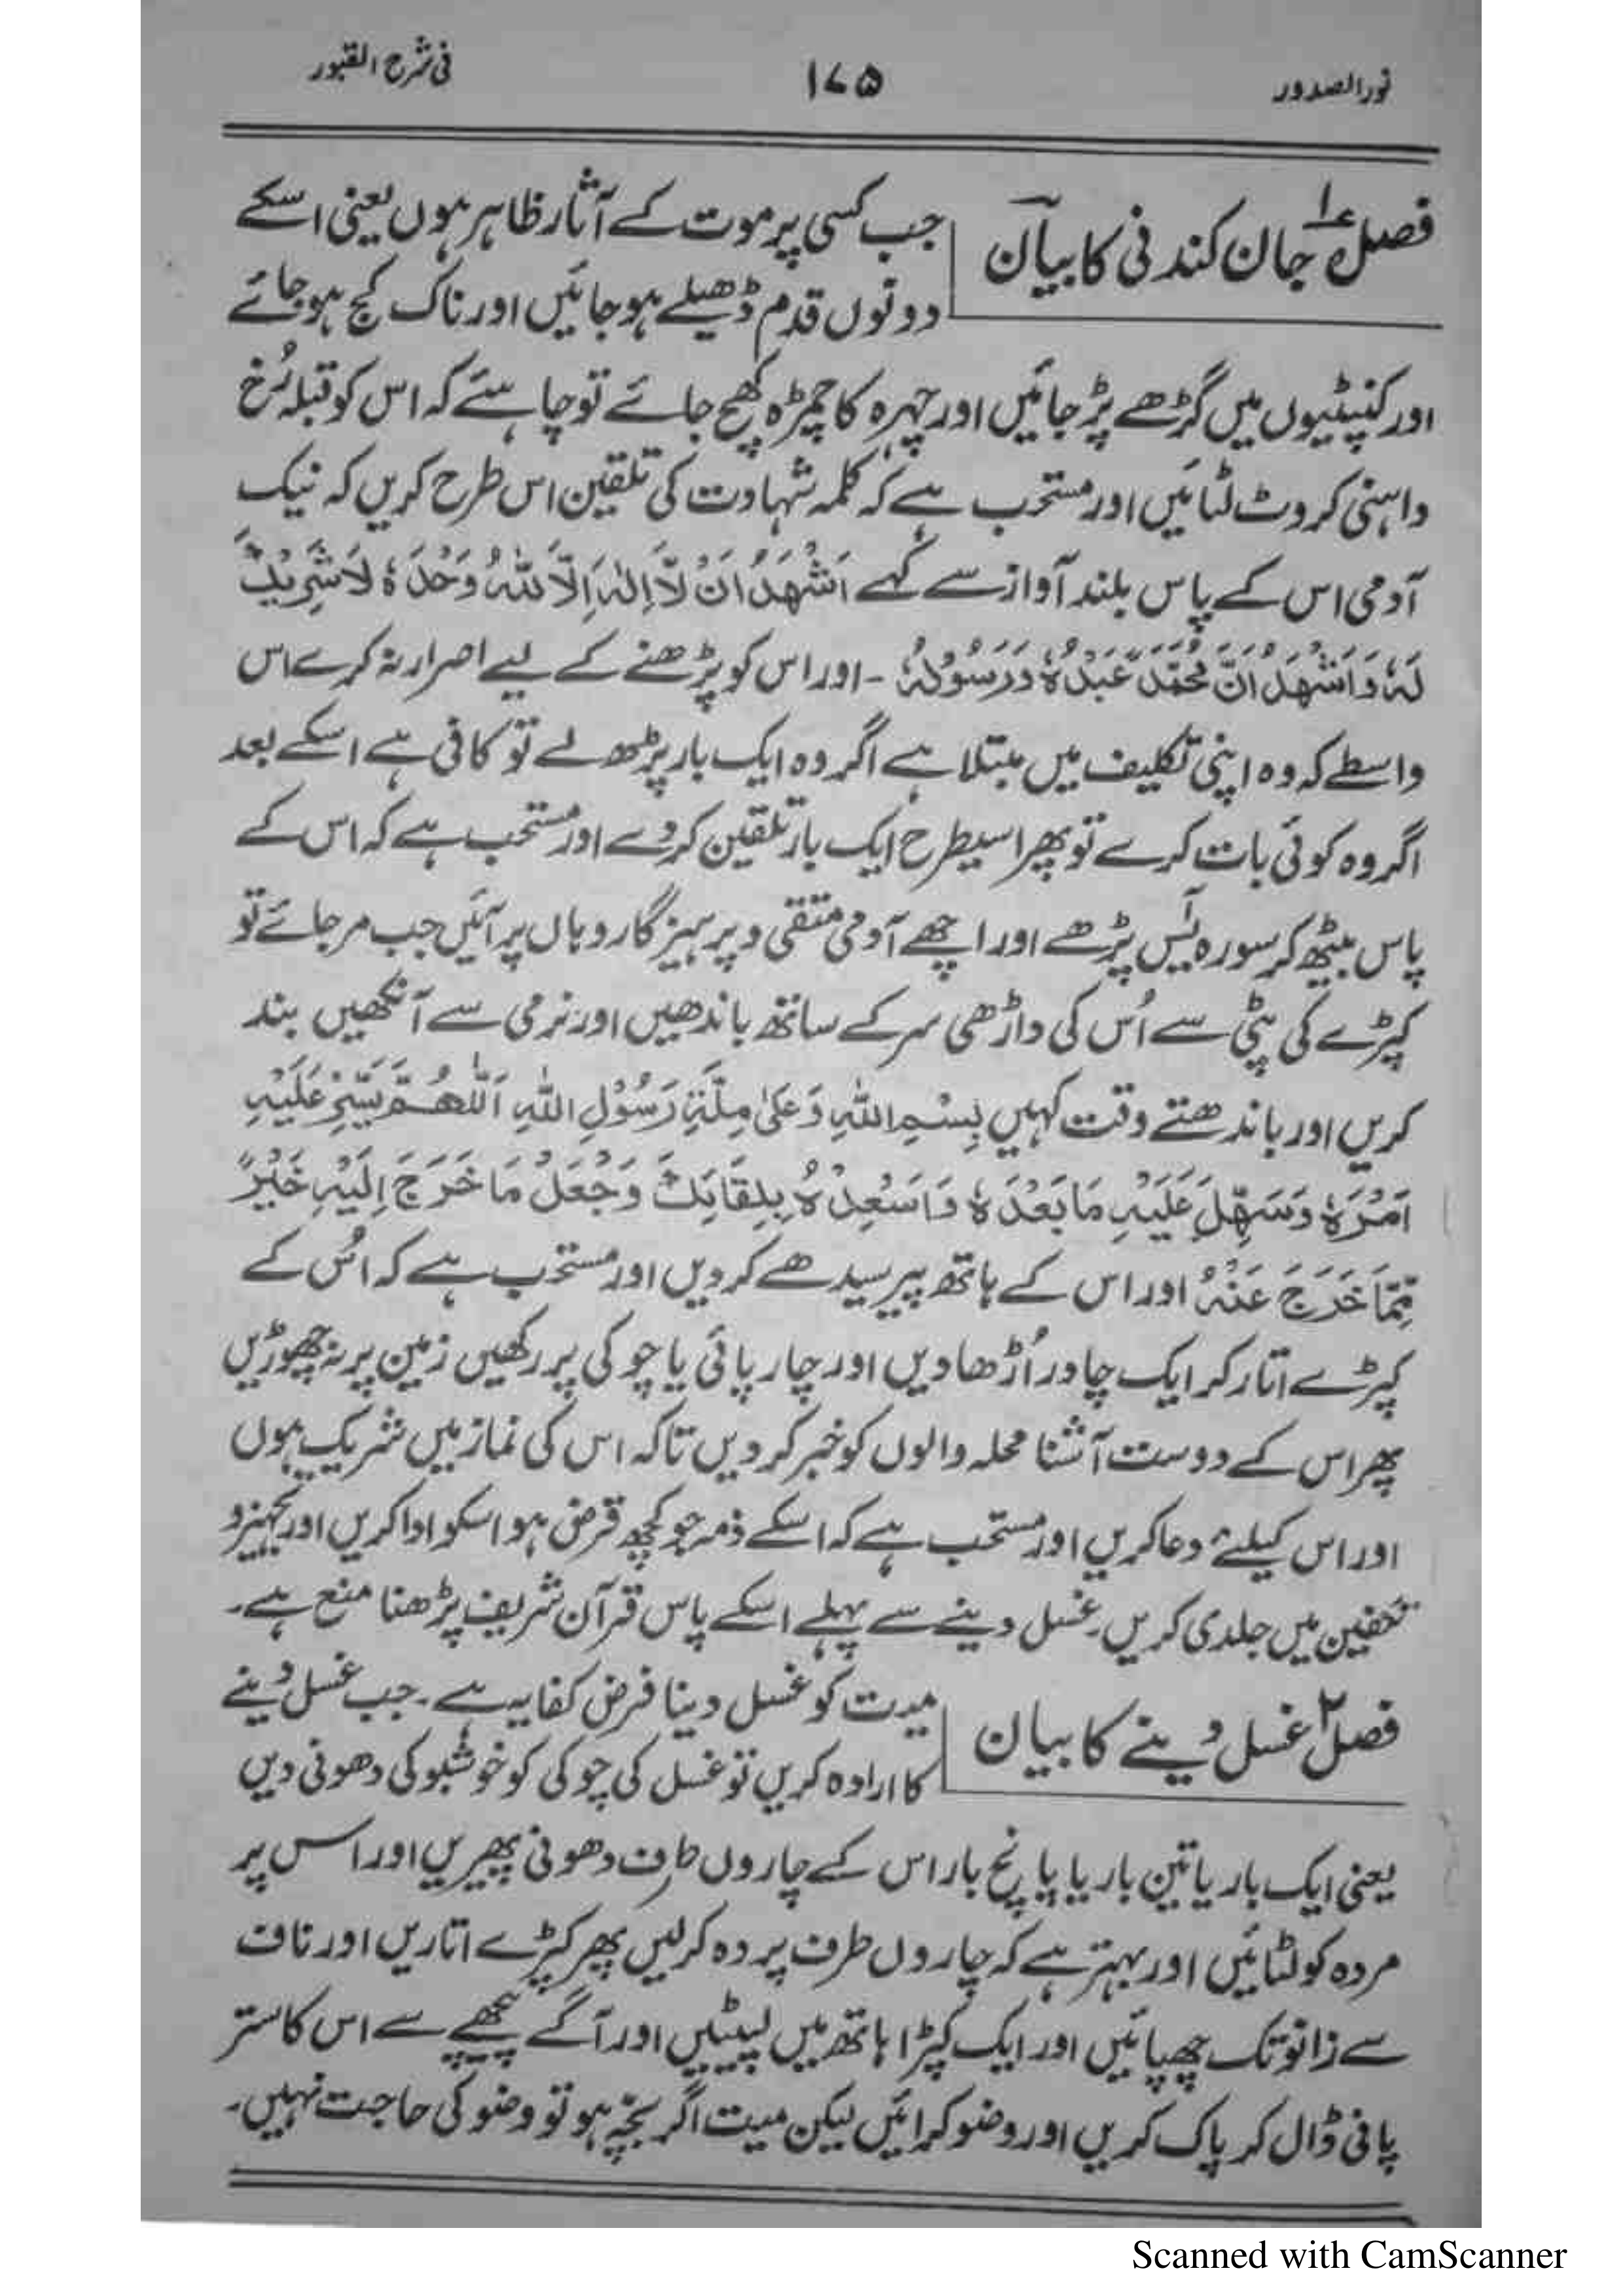 نور الصدور ۱۷۵ فی شرح القبور
فصل ۱؎ جان کندنی کا بیان
جب کسی پر موت کے آثار ظاہر ہوں یعنی اسکے
دونوں قدم ڈھیلے ہو جائیں اور ناک کج ہو جائے
اور کنپٹیوں میں گڑھے پڑ جائیں اور چہرہ کا چمڑہ کھچ جائے تو چاہئے کہ اس کو قبلہ رُخ
داہنی کروٹ لٹائیں اور مستحب ہے کہ کلمہ شہادت کی تلقین اس طرح کریں کہ نیک
آدمی اس کے پاس بلند آواز سے کہے اَشْهَدُ اَنْ لَّا اِلٰهَ اِلَّا اللّٰهُ وَحْدَهٗ لَا شَرِيْكَ
لَهٗ وَاَشْهَدُ اَنَّ مُحَمَّدًا عَبْدُهٗ وَرَسُوْلُهٗ ۔ اور اس کو پڑھنے کے لیے اصرار نہ کرے اس
واسطے کہ وہ اپنی تکلیف میں مبتلا ہے اگر وہ ایک بار پڑھ لے تو کافی ہے اسکے بعد
اگر وہ کوئی بات کرے تو پھر اسیطرح ایک بار تلقین کردے اور مستحب ہے کہ اس کے
پاس بیٹھ کر سورہ یٰس پڑھے اور اچھے آدمی متقی و پرہیزگار وہاں پر آئیں جب مر جائے تو
کپڑے کی پٹی سے اُس کی داڑھی سر کے ساتھ باندھیں اور نرمی سے آنکھیں بند
کریں اور باندھتے وقت کہیں بِسْمِ اللّٰهِ وَعَلٰى مِلَّةِ رَسُوْلِ اللّٰهِ اَللّٰهُمَّ يَسِّرْ عَلَيْهِ
اَمْرَهٗ وَسَهِّلْ عَلَيْهِ مَا بَعْدَهٗ وَاَسْعِدْهُ بِلِقَائِكَ وَجْعَلْ مَا خَرَجَ اِلَيْهِ خَيْرً
مِّمَّا خَرَجَ عَنْهُ اور اس کے ہاتھ پیر سیدھے کردیں اور مستحب ہے کہ اُس کے
کپڑے اتار کر ایک چادر اُڑھا دیں اور چارپائی یا چوکی پر رکھیں زمین پر نہ چھوڑیں
پھر اس کے دوست آشنا محلہ والوں کو خبر کردیں تاکہ اس کی نماز میں شریک ہوں
اور اس کیلئے دعا کریں اور مستحب ہے کہ اسکے ذمہ جو کچھ قرض ہو اسکو ادا کریں اور تجہیز و
تکفین میں جلدی کریں۔ غسل دینے سے پہلے اسکے پاس قرآن شریف پڑھنا منع ہے۔
فصل ۲ غسل دینے کا بیان
میت کو غسل دینا فرض کفایہ ہے۔ جب غسل دینے
کا ارادہ کریں تو غسل کی چوکی کو خوشبو کی دھونی دیں
یعنی ایک بار یا تین بار یا پانچ بار اس کے چاروں طرف دھونی پھیریں اور اس پر
مردہ کو لٹائیں اور بہتر ہے کہ چاروں طرف پردہ کرلیں پھر کپڑے اتاریں اور ناف
سے زانو تک چھپائیں اور ایک کپڑا ہاتھ میں لپیٹیں اور آگے پیچھے سے اس کا ستر
پانی ڈال کر پاک کریں اور وضو کرائیں لیکن میت اگر بچّہ ہو تو وضو کی حاجت نہیں۔
Scanned with CamScanner